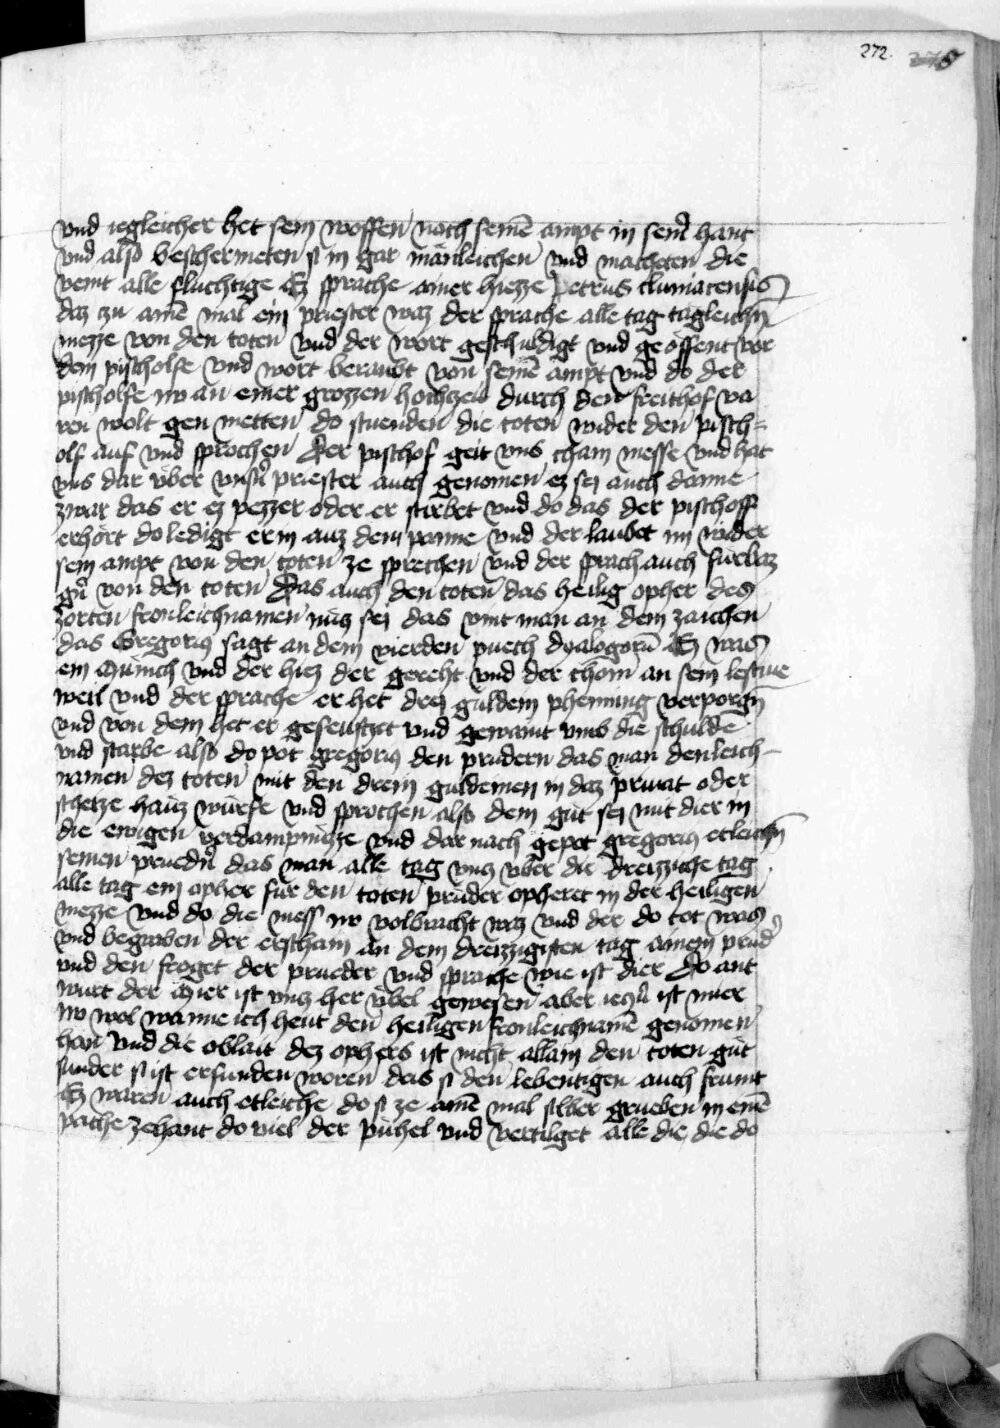 272.
vnd iegleicher het sein woffen noch seinē ampt in seinr̄ hant
vnd also beschermeten si in gar mānleichen vnd macheten die
veint alle fluchtige Ez sprache ainer hiezze Petrus cluniacensis
daz zu ainē mal ein priester waz der sprache alle tag tagleichn̄
mezze von den toten vnd der wort geschuldigt vnd geoffent vor
dem pischolfe vnd wort beraubt von seinē ampt vnd do der
pischolfe nv an einer grozzen hochzeit durch den freithof va
ren wolt gen metten do stuenden die toten wider den pisch-
olf auf vnd sprochen Der pischof geit vns cham messe vnd hat
vns dar vber vnsn̄ priester auch genomen ez sej auch danne
zwar das er ez pezzer oder er stirbet vnd do das der pischoff
erhort do ledigt er in auz dem panne vnd der laubet im wider
sein ampt von den toten ze sprechen vnd der sprach auch furbaz
gn̄ von den toten Das auch den toten das heilig opher des
zorten fronleichnamen nutz sej das vint man an dem zaichen
das Gregorius sagt an dem vierden puech dyalogorū Ez was
ein Munich vnd der hiez der gereht vnd der chom an sein lestue
weil vnd der sprache er het drej guldein phenning verporgn̄
vnd von dem het er geseufczt vnd gewaint vmb die schulde
vnd starbe also do pot gregorius den prudern das man den leich-
namen dez toten mit den drein guldeinen in daz priuat oder
scheizze hauz wurfe vnd sprochen also dem gut sej mit dier in
die ewigen verdampnuzze vnd dar nach gepot gregorius etleichn̄
seinen pruedn̄ das man alle tag vncz vber die dreizzicke tag
alle tag ein opher fur den toten pruder opheret in der heiligen
mezze vnd do die mess nv volbracht waz vnd der do tot was
vnd begraben der erscham an dem dreizzigisten tag ainem prud̄
vnd den froget der prueder vnd sprache wie ist dier Do ant
wurt der Mier ist vncz her vbel gewesen aber ieczn̄ ist mier
nv wol wanne ich heut den heiligen fronleichnamē genomen
han vnd die oblait dez ophers ist nicht allain den toten gut
sunder si ist erfunden woren das si den lebentigen auch frumt
Ez waren auch etleiche do si ze ainē mal silber grueben in einē
pache zehant do viel der puhel vnd vertilget alle die die do